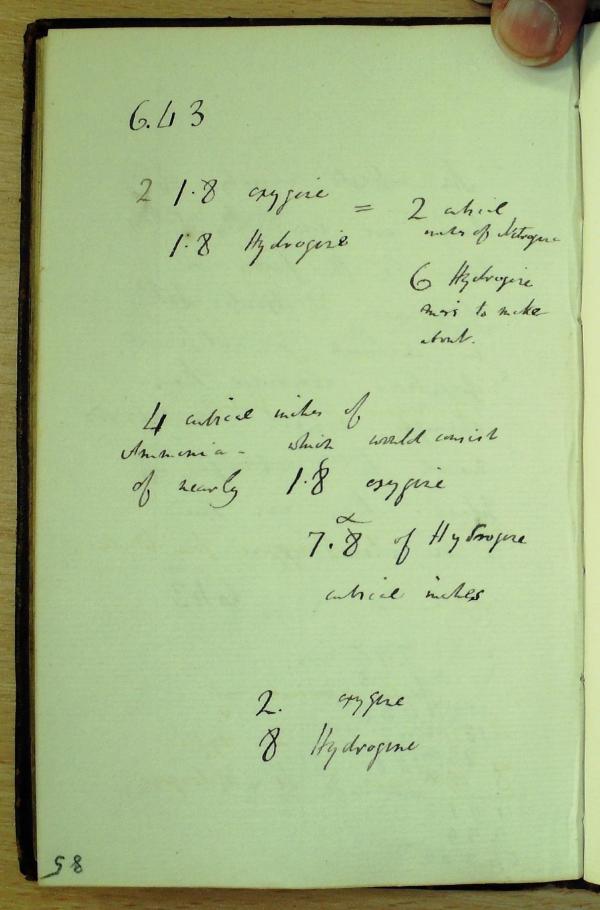 6.43
2 1.8 oxygene = 2 cubical
inches of Nitrogene
1.8 Hydrogene
6 Hydrogene
to make
about.
4 cubical inches of
Ammonia - which would consist
of nearly 1.8 oxygene
7.8 of Hydrogene
cubical inches
2. oxygene
8 Hydrogene
58